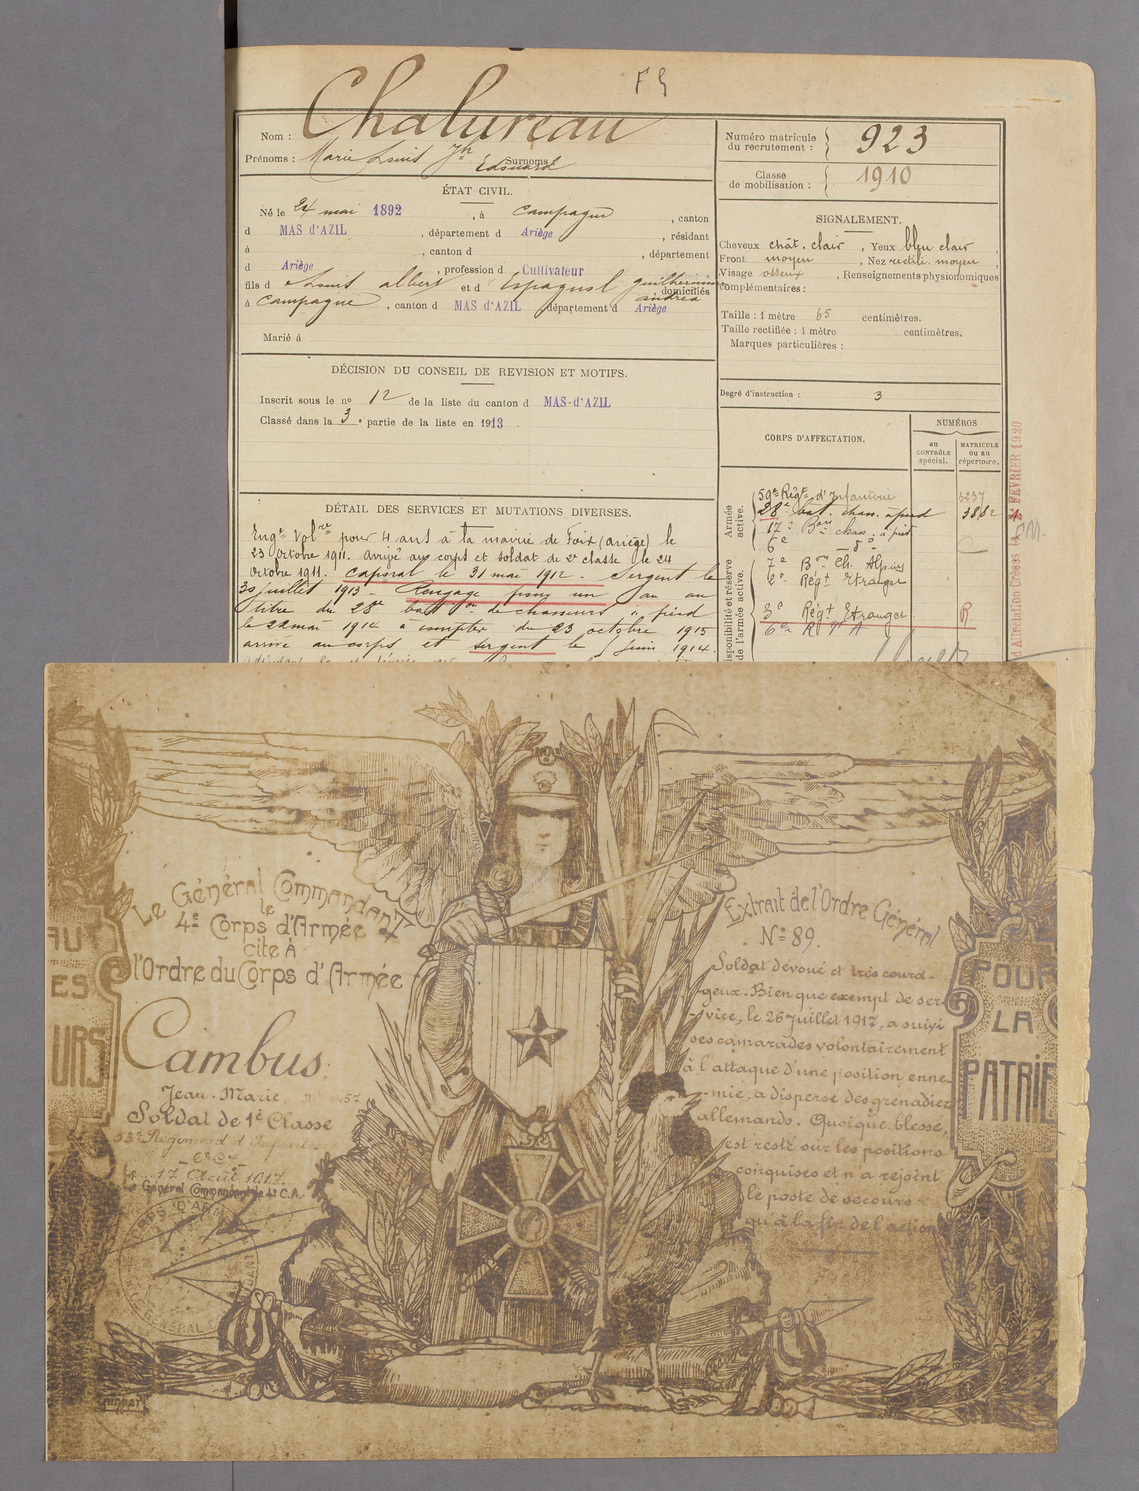 F G
Nom : Chalureau
Prénoms : Marie Louis Jh Edouard Surnoms
ÉTAT CIVIL.
Né le 24 mai 1892, à Campagne, canton
d MAS d'AZIL, département d Ariège, résidant
à , canton d , département
d Ariège, profession d Cultivateur
fils d Louis albert et d Espagnol guilhermine andréa domiciliés
à Campagne, canton d MAS d'AZIL, département d Ariège
Marié à
DÉCISION DU CONSEIL DE REVISION ET MOTIFS.
Inscrit sous le n° 12 de la liste du canton d MAS-d'AZIL
Classé dans la 3e partie de la liste en 1913.
DÉTAIL DES SERVICES ET MUTATIONS DIVERSES.
Engé volre pour 4 ans à la mairie de Foix (ariège) le
23 octobre 1911. arrivé au corps et soldat de 2e classe le 24
octobre 1911. caporal le 31 mai 1912. Sergent le
30 juillet 1913. Rengagé pour un an au
titre du 28e baton de chasseurs à pied
le 22 mai 1914 à compter du 23 octobre 1915
arrivé au corps et sergent le 1 juin 1914.
Numéro matricule du recrutement : 923
Classe de mobilisation : 1910
SIGNALEMENT.
Cheveux chât. clair, Yeux bleu clair,
Front moyen, Nez rectili. moyen,
Visage osseux, Renseignements physionomiques
complémentaires :
Taille : 1 mètre 65 centimètres.
Taille rectifiée : 1 mètre centimètres.
Marques particulières :
Degré d'instruction : 3
CORPS D'AFFECTATION.
NUMÉROS
au CONTRÔLE spécial.
MATRICULE ou au répertoire.
Armée active.
59e Régt d'Infanterie 3237
28e bat. chas. à pied
17e Bon chas. à pied
6e - do -
Disponibilité et réserve de l'armée active.
7e Bon Ch. Alpins
2e Régt Etranger
3e Régt Etranger R.
6e R T A
FÉVRIER 1930
Le Général Commandant
le
4e Corps d'Armée
cite à
l'Ordre du Corps d'Armée
Cambus
Jean-Marie,
Soldat de 1e Classe
53e Régiment d'Infanterie
6e Cie
Le 17 Août 1917.
Le Général Commandant le 4e C.A.
CORPS D'ARMÉE
LE GÉNÉRAL
AUX
ES
URS
Extrait de l'Ordre Général
N° 89.
Soldat dévoué et très coura-
geux. Bien que exempt de ser-
vice, le 26 Juillet 1917, a suivi
ses camarades volontairement
à l'attaque d'une position enne-
mie, a dispersé des grenadiers
allemands. Quoique blessé,
est resté sur les positions
conquises et n'a rejoint
le poste de secours
qu'à la fin de l'action
POUR
LA
PATRIE